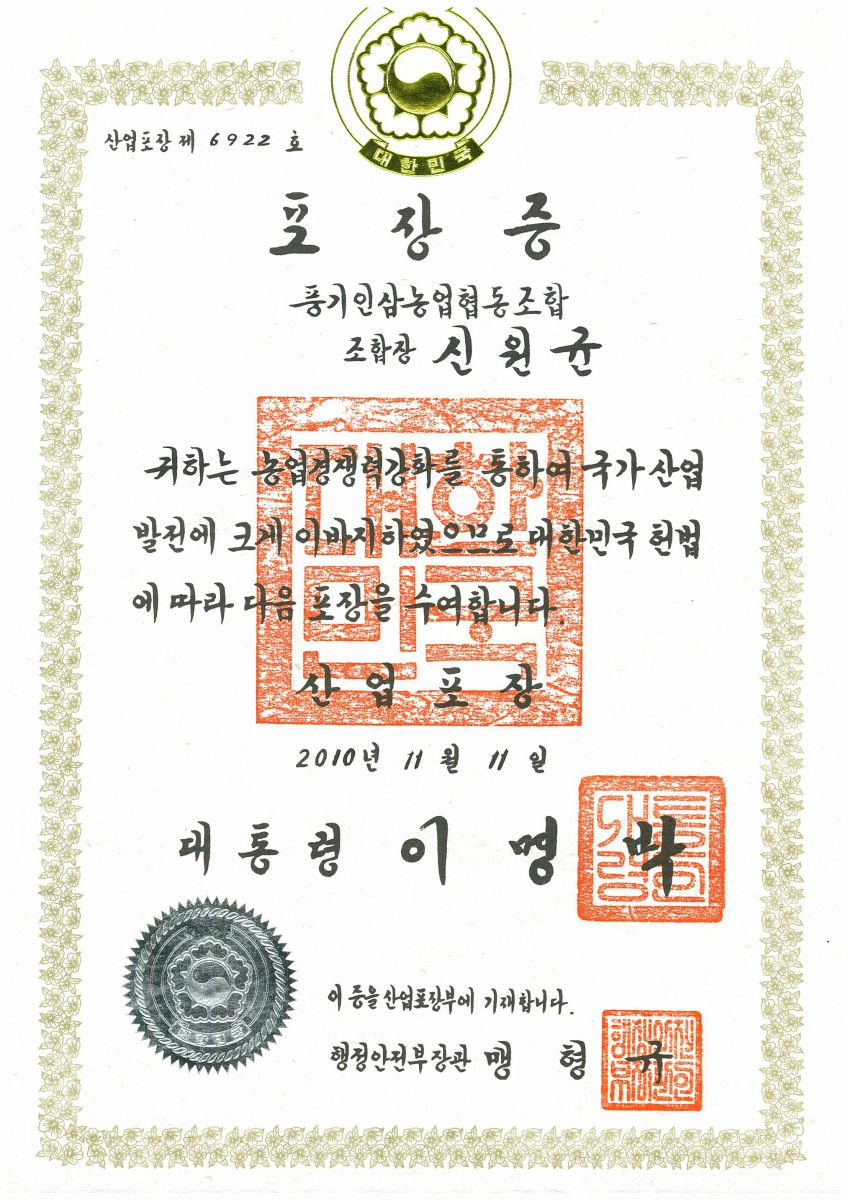 대한민국
산업포장 제 6922 호
포장증
풍기인삼농업협동조합
조합장 신원균
귀하는 농업경쟁력강화를 통하여 국가 산업
발전에 크게 이바지하였으므로 대한민국 헌법
에 따라 다음 포장을 수여합니다.
산업포장
2010년 11월 11일
대통령 이명박
이 증을 산업포장부에 기재합니다.
행정안전부장관 맹형규